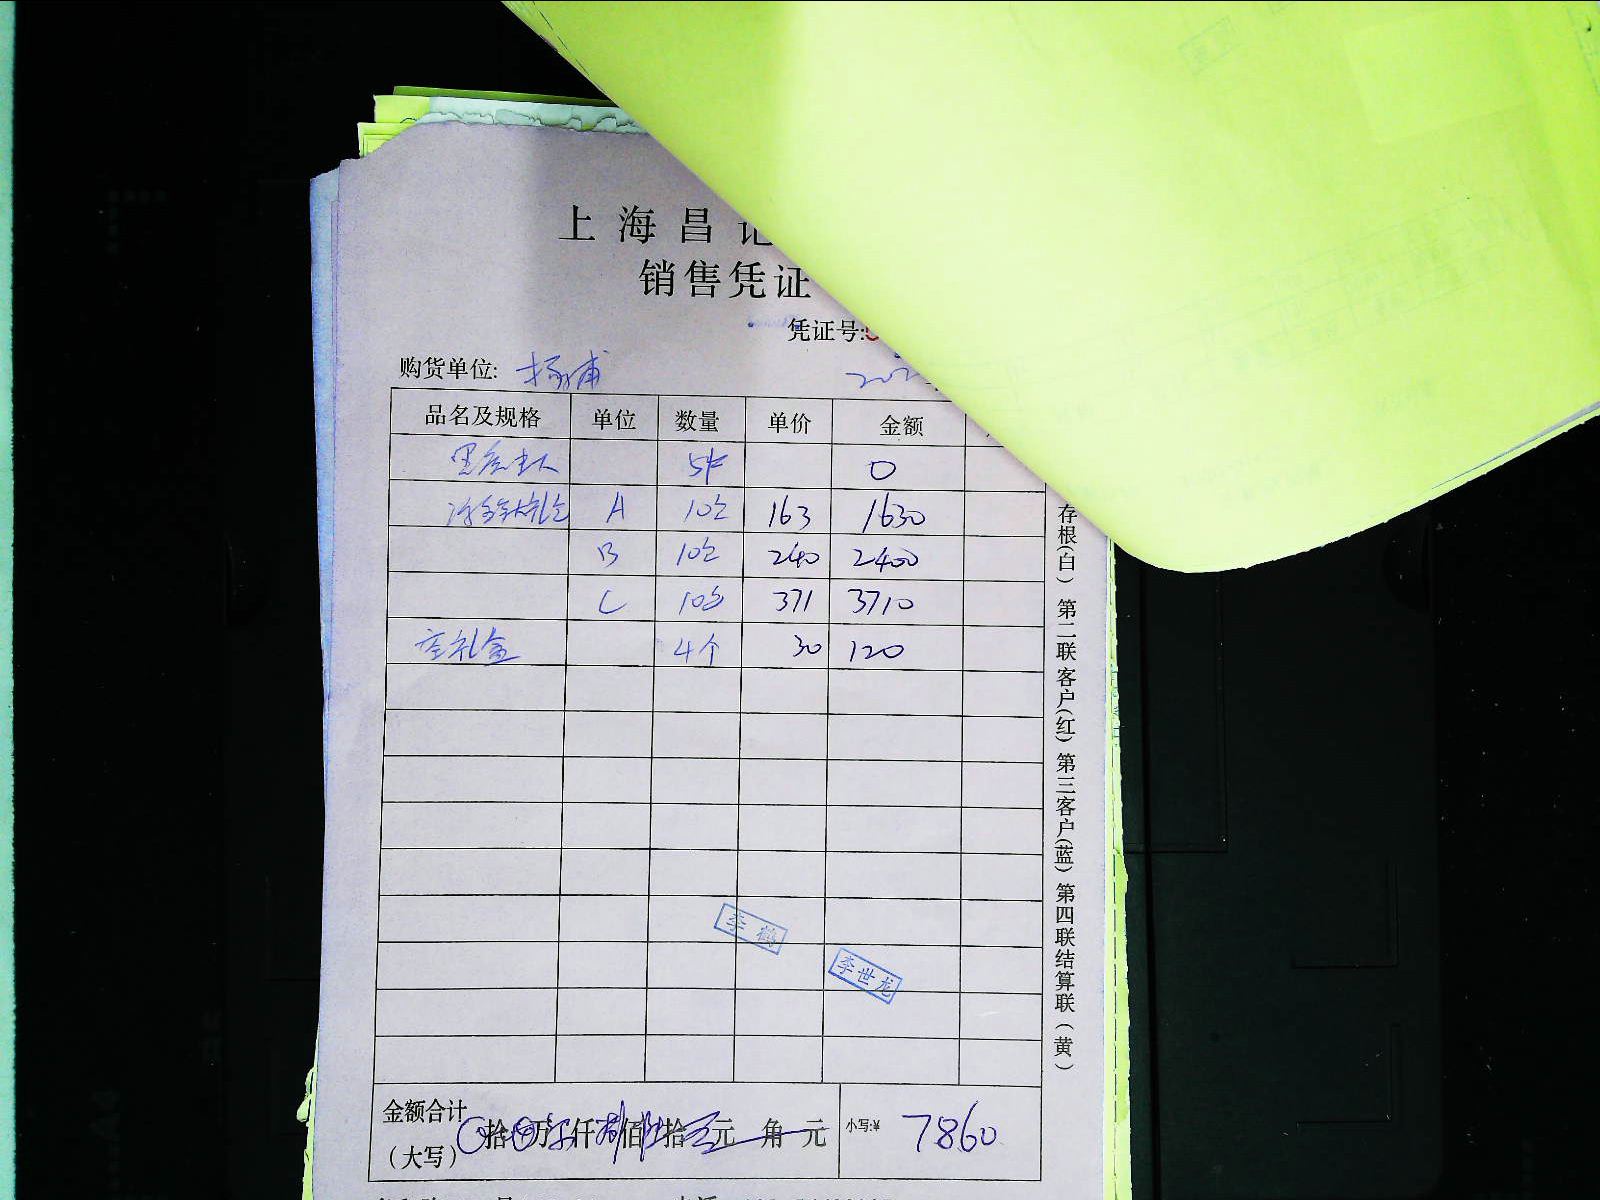 上海昌记
销售凭证
凭证号:
购货单位: 杨浦 202
品名及规格 单位 数量 单价 金额
5 0
A 10 163 1630
B 10 240 2400
C 10 371 3710
空礼盒 4个 30 120
李鹤
李世龙
金额合计
(大写) 拾 万 仟 佰 拾 元 角 元 小写:¥ 7860
存根(白) 第二联客户(红) 第三客户(蓝) 第四联结算联(黄)